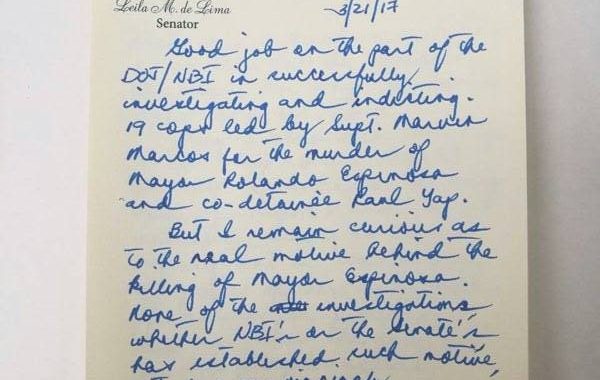 Leila M. de Lima
Senator
3/21/17
Good job on the part of the
DOJ/NBI in successfully
investigating and indicting
19 cops led by Supt. Marvin
Marcos for the murder of
Mayor Rolando Espinosa
and co-detainee Raul Yap.
But I remain curious as
to the real motive behind the
killing of Mayor Espinosa.
None of the investigations,
whether NBI's or the Senate's
has established such motive,